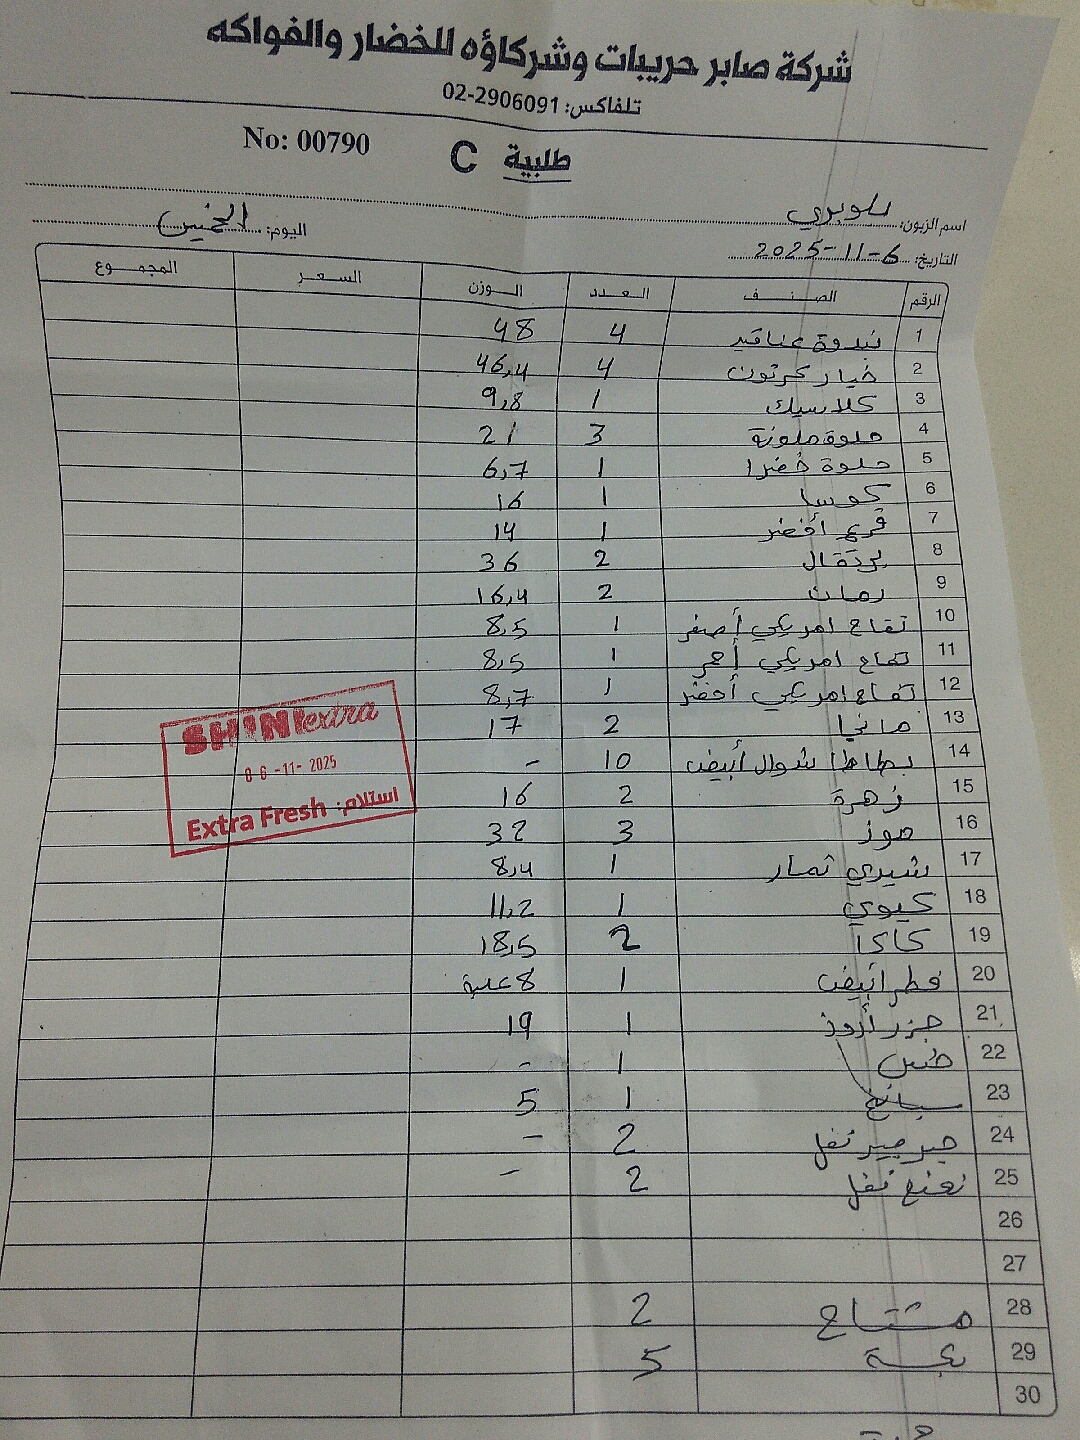 شركة صابر حريبات وشركاؤه للخضار والفواكه
تلفاكس: 02-2906091
No: 00790 طلبية C
اسم الزبون:
التاريخ: 6-11-2025 اليوم: الخميس
الرقم الصنف العدد الوزن السعر المجموع
1 بندوة عناقيد 4 48
2 خيار كرتون 4 46,4
3 كلاسيك 1 9,8
4 حلوة ملونة 3 21
5 حلوة خضرا 1 6,7
6 كوسا 1 16
7 قرع أخضر 1 14
8 برتقال 2 36
9 رمان 2 16,4
10 تفاح امريكي أصفر 1 8,5
11 تفاح امريكي أحمر 1 8,5
12 تفاح امريكي أخضر 1 8,7
13 مانجا 2 17
14 بطاطا شوال أبيض 10 -
15 زهرة 2 16
16 موز 3 32
17 شيري تمار 1 8,4
18 كيوي 1 11,2
19 كاكا 2 18,5
20 فطر أبيض 1 8 علبة
21 جزر 1 19
22 خس 1 -
23 سبانخ 1 5
24 جرجير نفل 2 -
25 نعنع نفل 2 -
26
27
28 مشتاح 2
29 5
30
SHINI extra
06-11-2025
استلام: Extra Fresh